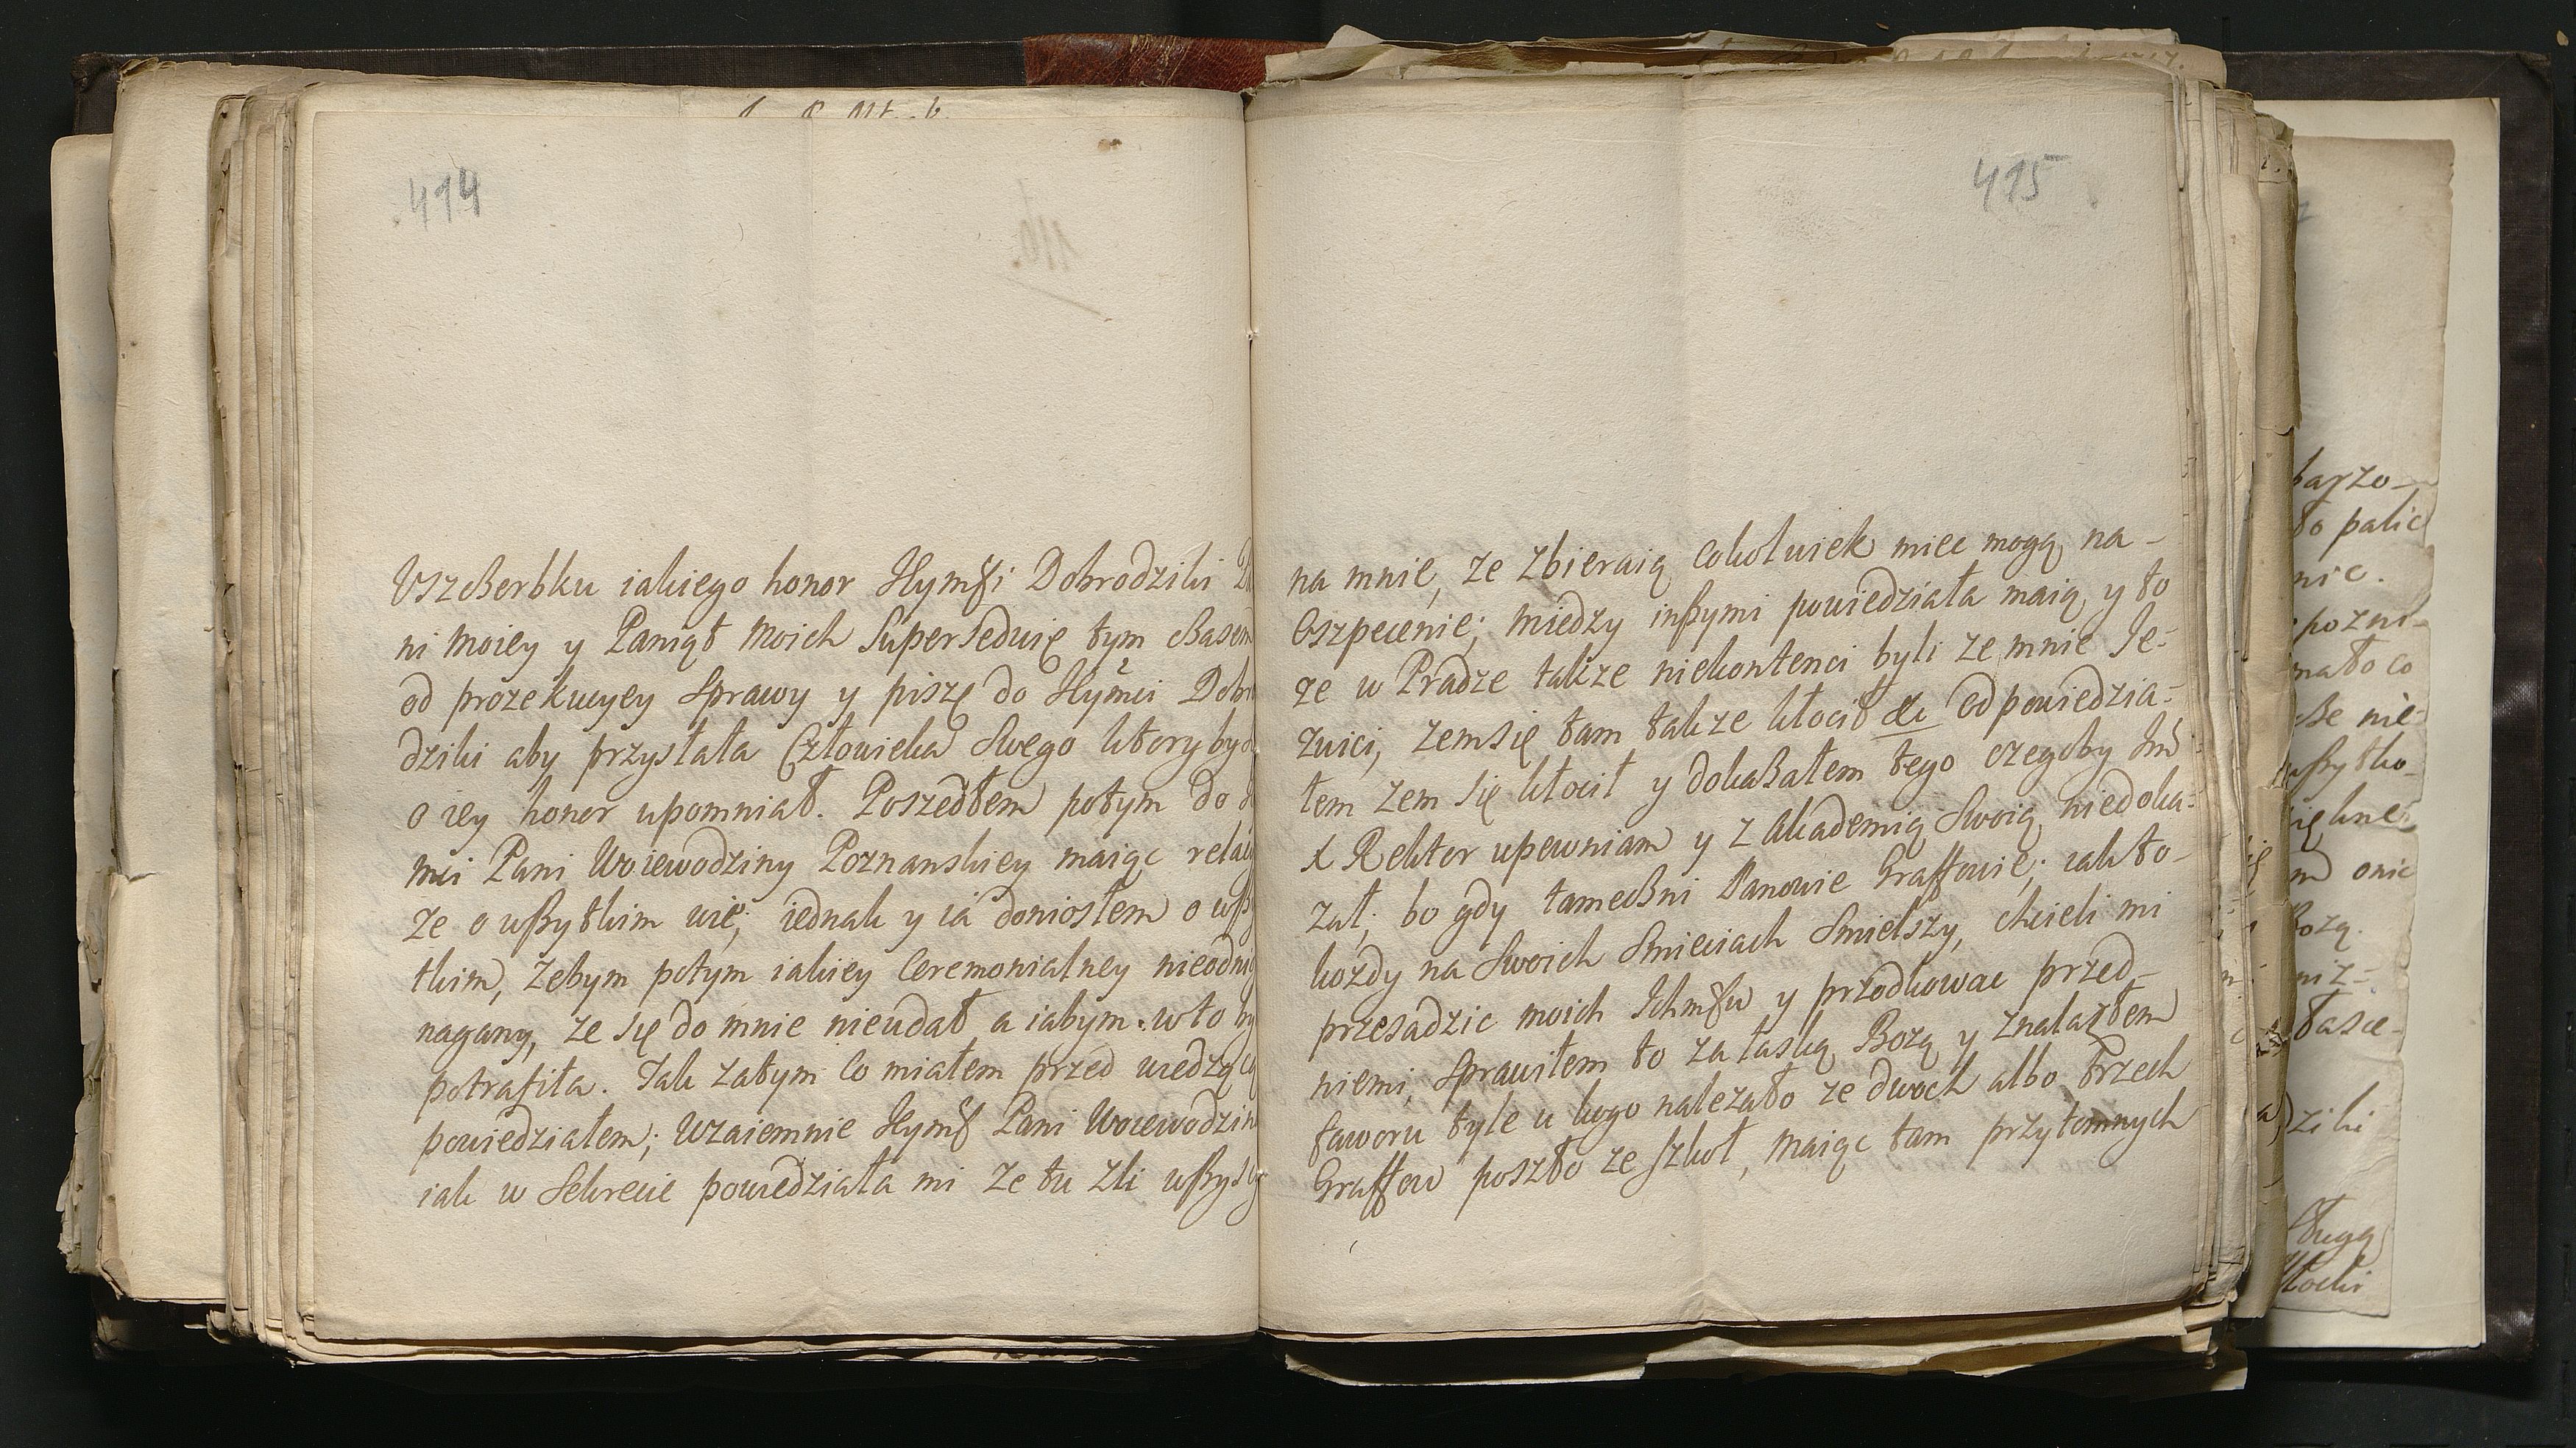 414
Uszczerbku iakiego honor Jeymści Dobrodziki
ni moiey y Paniąt moich supersedwię tym czasem
od prozekucyey sprawy y piszę do Jeymci Dobro
dziki aby przysłała Człowieka swego ktoryby
o iey honor upomniał. Poszedłem potym do
mci Pani Woiewodziny Poznanskiey maiąc relacy
ze o wszytkim wie; iednak y ia doniosłem o wszy
tkim, zebym potym iakiey ceremonialney nieodnio
nagany, ze się do mnie nieudał a iabym w to
potrafiła. Tak zatym co miałem przed wiedzącą
powiedziałem; wzaiemnie Jeymść Pani Woiewodzin
iak w sekrecie powiedziała mi ze tu zli wszyscy
415
na mnie, ze zbieraią cokolwiek miec mogą na-
oszpecenie; miedzy inszymi powiedziała maią y to
ze w Pradze takze niekontenci byli ze mnie Je-
zuici, zem się tam takze kłocił &c odpowiedzia-
łem zem się kłocił y dokazałem tego czegoby Jmć
X Rektor upewniam y z Akademią swoią niedoka-
zał; bo gdy tameczni Panowie Graffowie; iak to-
kozdy na swoich smieciach smielszy, chcieli mi
przesadzic moich Ichmściow y przodkowac przed-
niemi, sprawiłem to za łaską Bozą y znalazłem
faworu tyle u kogo nalezało ze dwoch albo trzech
Graffow poszło ze szkoł, maiąc tam przytomnych
barzo-
to palic
nic.
pozni-
mało co
nie-
wszytko-
onic
Bozą.
niz-
łasce-
dziki
sługą